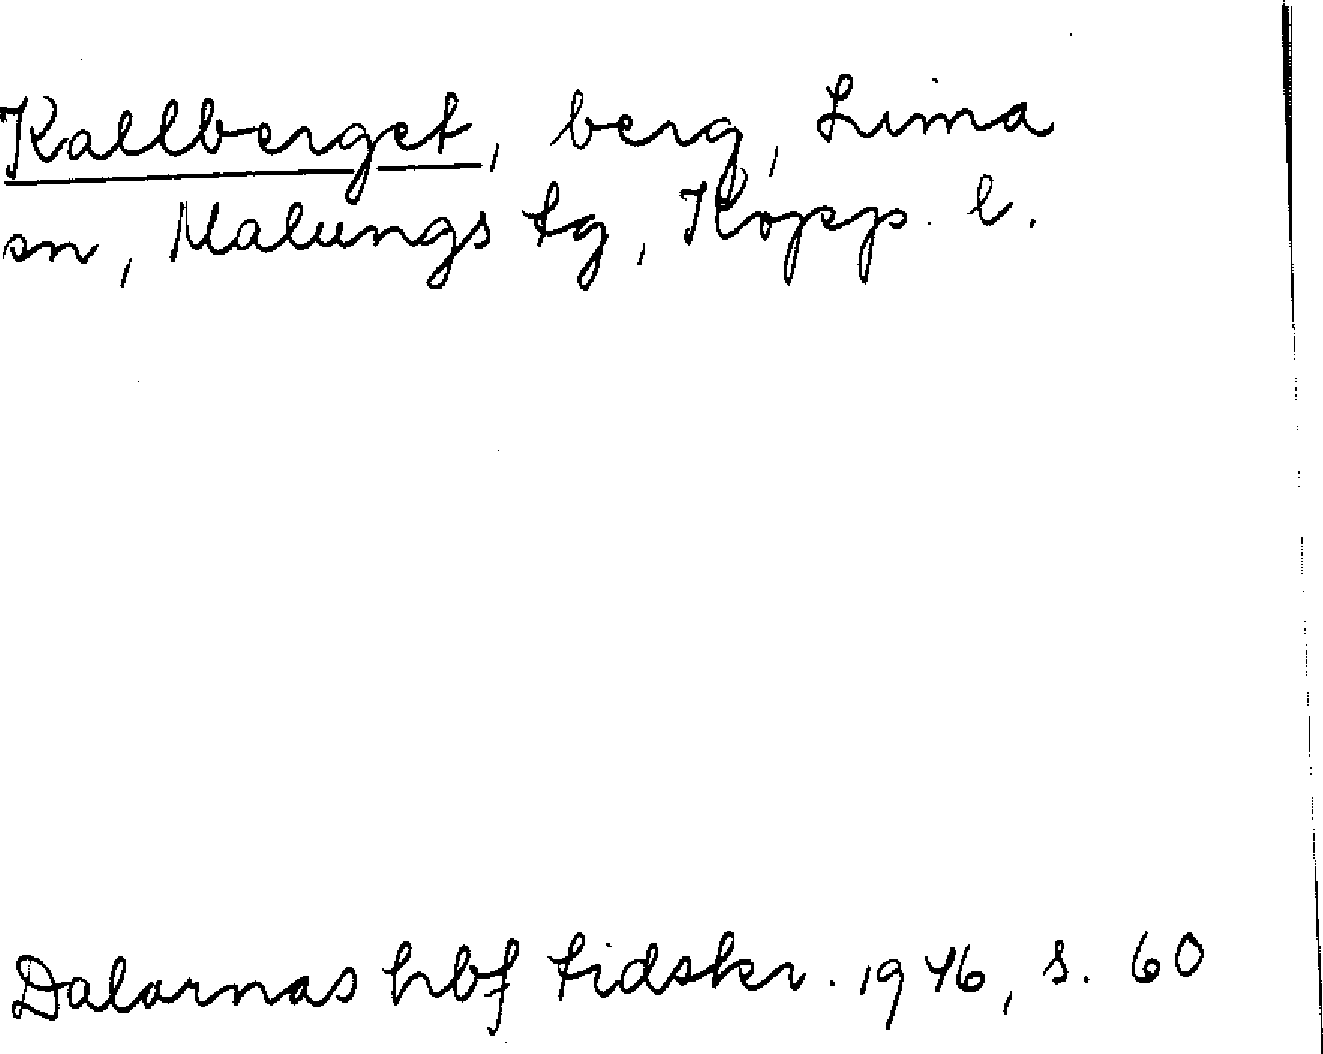 Kallberget, berg, Lima
sn, Malungs tg, Kopp. l.
Dalarnas hbf tidskr. 1946, s. 60